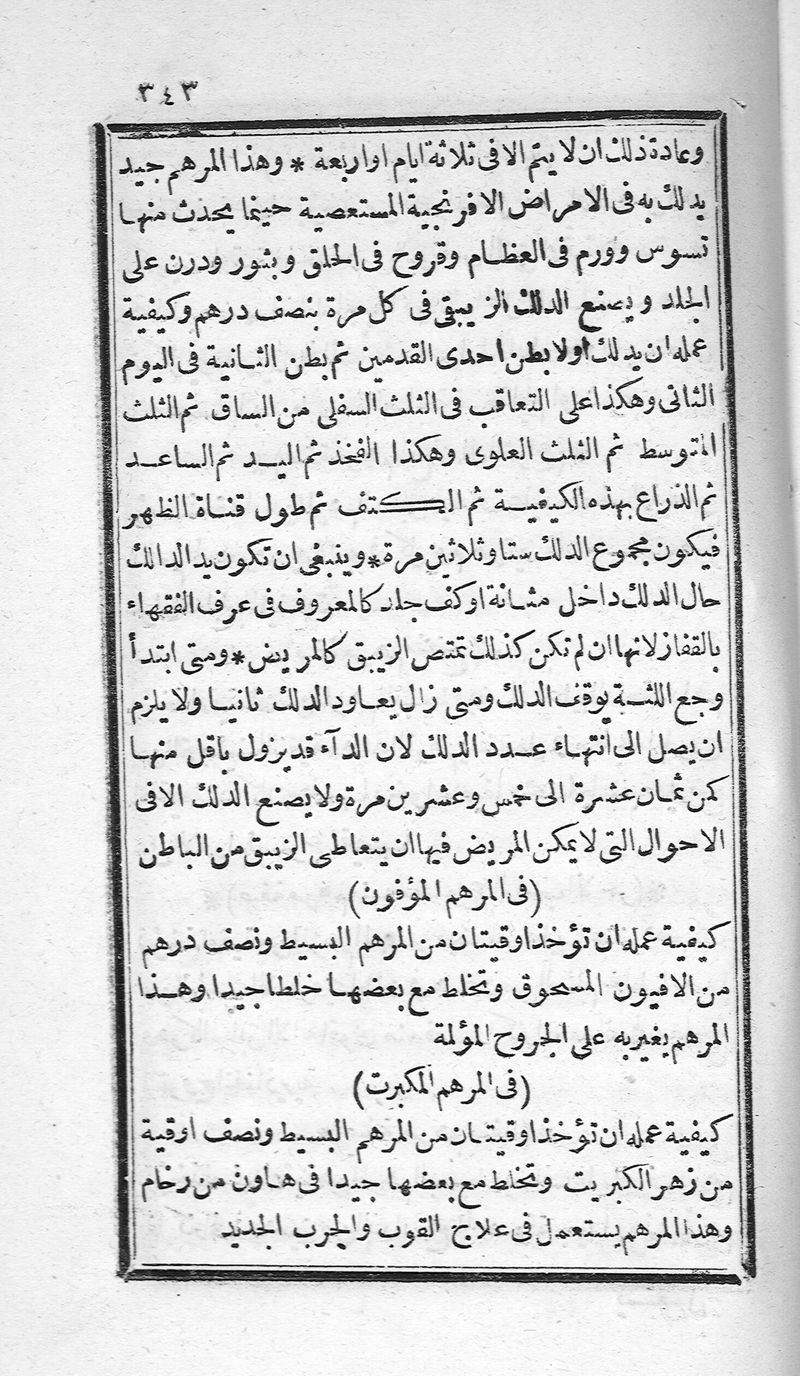 ٣٤٣
وعادة ذلك ان لا يتم الا فى ثلاثة ايام او اربعة * وهذا المرهم جيد
يدلك به فى الامراض الافرنجية المستعصية حينما يحدث منها
تسوس وورم فى العظام وقروح فى الحلق وبثور ودرن على
الجلد ويصنع الدلك الزيبقى فى كل مرة بنصف درهم وكيفية
عمله ان يدلك اولا بطن احدى القدمين ثم بطن الثانية فى اليوم
الثانى وهكذا على التعاقب فى الثلث السفلى من الساق ثم الثلث
المتوسط ثم الثلث العلوى وهكذا الفخذ ثم اليد ثم الساعد
ثم الذراع بهذه الكيفية ثم الكتف ثم طول قناة الظهر
فيكون مجموع الدلك ستا وثلاثين مرة * وينبغى ان تكون يد الدالك
حال الدلك داخل مثانة او كف جلد كالمعروف فى عرف الفقهاء
بالقفاز لانها ان لم تكن كذلك تمتص الزيبق كالمريض * ومتى ابتدأ
وجع اللثة يوقف الدلك ومتى زال يعاود الدلك ثانيا ولا يلزم
ان يصل الى انتهاء عدد الدلك لان الدآء قد يزول باقل منها
كمن ثمان عشرة الى خمس وعشرين مرة ولا يصنع الدلك الا فى
الاحوال التى لا يمكن المريض فيها ان يتعاطى الزيبق من الباطن
(فى المرهم المؤفون)
كيفية عمله ان تؤخذ اوقيتان من المرهم البسيط ونصف درهم
من الافيون المسحوق وتخلط مع بعضها خلطا جيدا وهذا
المرهم يغير به على الجروح المؤلمة
(فى المرهم المكبرت)
كيفية عمله ان تؤخذ اوقيتان من المرهم البسيط ونصف اوقية
من زهر الكبريت وتخلط مع بعضها جيدا فى هاون من رخام
وهذا المرهم يستعمل فى علاج القوب والجرب الجديد